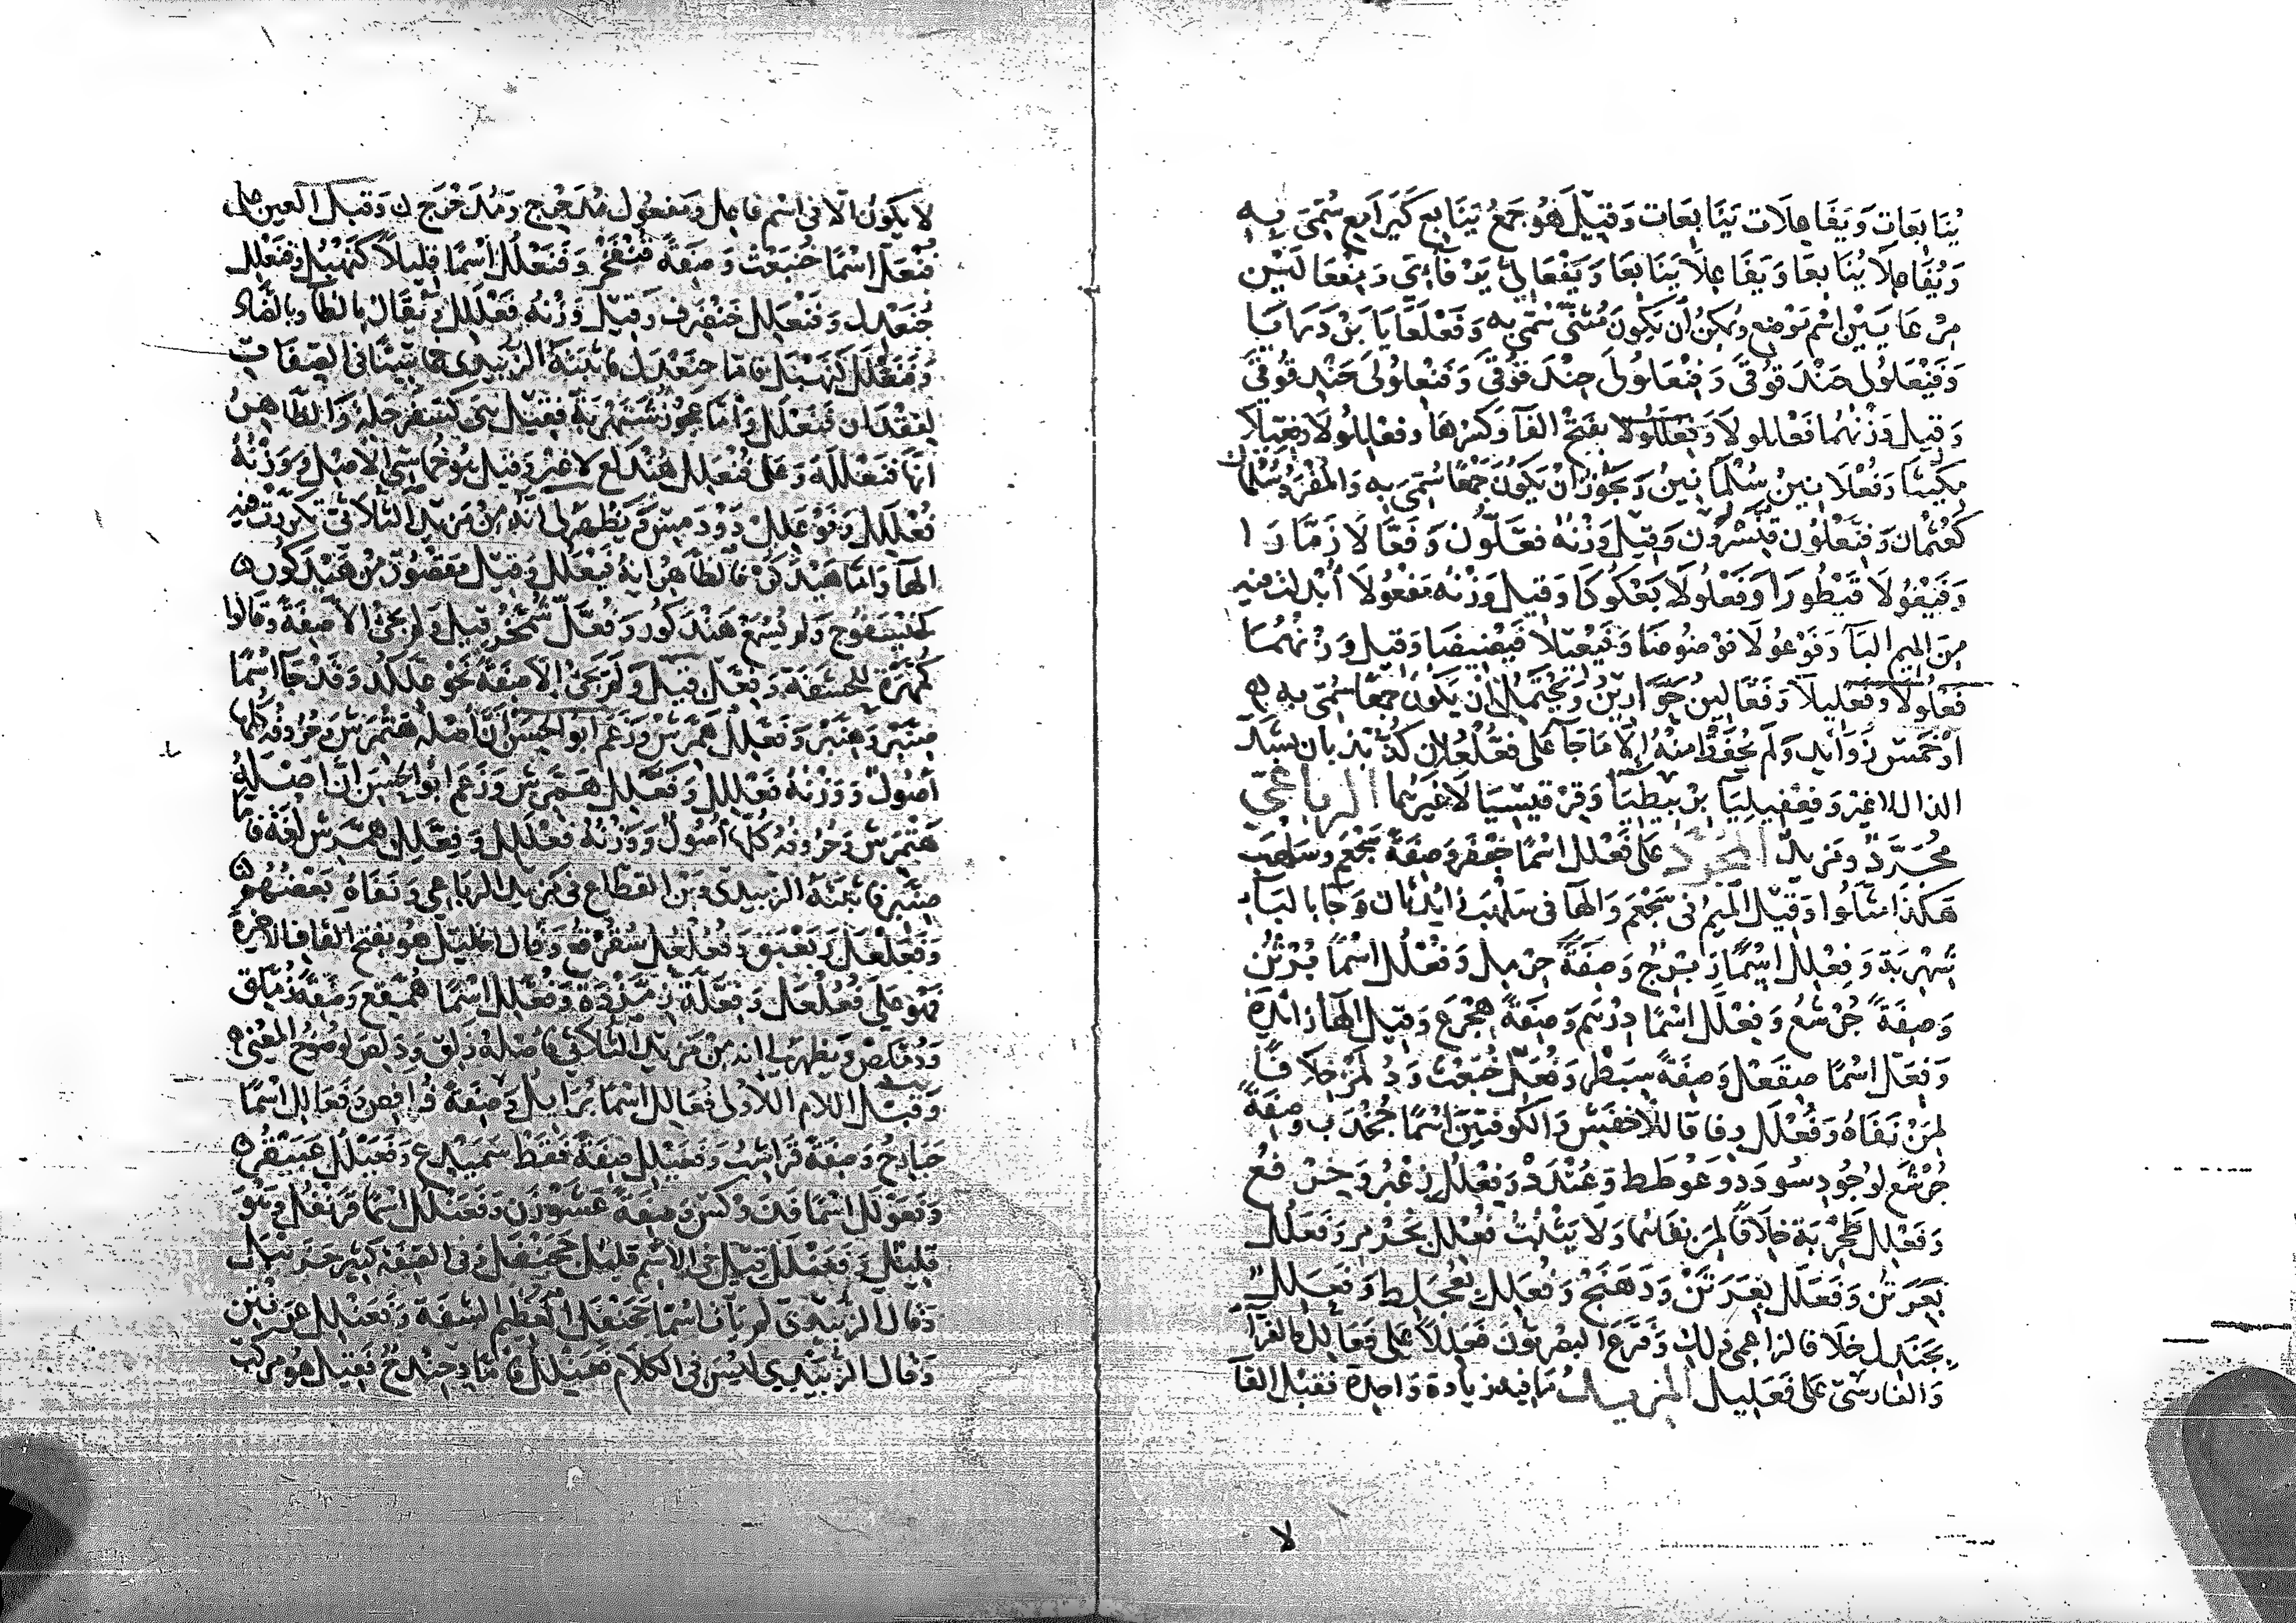 يُنَابِعَاتٍ وَيَفَاعِلَات يَنَابِعَات وَقِيلَ هُوَ جَمْعُ يَنَابِع كَيَرَابِع سُمِّيَ بِهِ
وَيُفَاعِلَا يُنَابِعَا وَيَفَاعِلَا يَنَابَعَا وَيَفْعَالِي يَرْفَائِي وَمِفْعَالَيْن
مِرْعَايَيْن اسْم مَوْضِع وَيُمكِنُ أَن يَكُونَ مُثَنًّى سُمِّيَ بِه وَفَعْلَعَايَا بَرْدَرَايَا
وَفَنْعَلُولَى حَنْدَقُوقَى وَفِنْعَلُولَى حِنْدَقُوقَى وَفَنْعلُولَى حَنْدقُوقَى
وَقِيلَ وَزْنُهُمَا فَعْلَلُولَا وَفَعْلَلُولَا بِفَتْحِ الفَا وَكسْرهَا وَفعْلِلُولَا وَفِعِّيلَا
مِكِّيثَا وَفُعْلَانِينُ سُلْمَانِينُ وَيَجُوزُ أنْ يَكُونَ جَمْعًا سُمِّيَ بِهِ وَالمُفْرَدُ سُلْمَان
كَعُثْمَان وَفِنَّعْلُوْن قِنَّسْرُوْن وَقِيلَ وَزْنُهُ فِعَّلُّون وَفَعَّالَا زَمَّارَا
وَفَيْعُولَا قَيْطُورَا وَفَعْلُولَا بَعْكُوكَا وَقِيلَ وَزْنُه مَفْعُولَا أُبْدلت فيه
مِنَ المِيمِ البَآ وَفَوْعُولَا فَوْضُوضَا وَفَيْعِيلَا فَيْضِيضَا وَقِيلَ وَزْنُهُمَا
فَعْلُولَا وَفَعْلِيلَا وَفَعَّالِينُ حَوَّارِينُ وَيُحْتَمَلُ أَنْ يَكُونَ جَمْعًا سُمِّيَ بِهِ
أَوْ خَمْسُ زَوَائِد وَلَم يُحْفَظْ مِنْهُ إِلَّا مَا جَآ عَلَى فُعُّلْعُلَان كُذُّبْذُبان بِشَدِّ
الذال لا غير وَفِعْفِيلِيَآ بِرْبِيطِيَآ وَقِرْقِيسِيَا لَا غَيْرُهما الرباعيّ
مُجَرَّدٌ وَمَزِيدٌ المجرّد عَلَى فَعْلَل اسْمًا جَعْفَر وَصِفَةً شَجْعَم وَسَلْهَب
هَكَذَا مَثَّلُوا وَقِيلَ المِيمُ فى شَجْعَم وَالهَآ فى سَلْهَب زَايِدَتَان وَجَا بالتَآ
شَهْرَبَة وَفِعْلِل اسْمًا زِبْرِج وَصِفَةً خِرْمِل وَفُعْلُل اسْمًا بُرْثُن
وَصِفَةً جُرْشُع وَفِعْلَل اسْمًا دِرْهَم وَصِفَةً هِجْرَع وَقِيلَ الهَا زَائِدَة
وَفِعَلّ اسْمًا صِقَعْل وَصِفَةً سِبَطْر وَفُعَلّ خُبَعْث وَدُلَمْز خِلَافًا
لِمَنْ نَفَاهُ وَفُعْلَل وِفَاقًا لِلْأَخْفَش وَالكُوفِيّينَ اسْمًا جُخْدَب وَصِفَةً
جُرْشَع لِوُجُودِ سُودَد وَعُوْطَط وَعُنْدَد وَفِعْلُل زِغْبُر وَخِرْفُع
وَفَعْلِل طَحْرِبَة خِلَافًا لِمَن نفَاهُما وَلَا يَثْبُتُ فُعْلِل بِخُرْ وَفَعَلُل
بِعَرَتُن وَفَعَلَل بِعَرَتَن وَدَهَنَج وَفُعَلِل بِعُجَلِط وَفَعَلِل
بِجَنَدِل خِلَافًا لزاعمى ذلك وَفَرَّعَ البَصْرِيُّونَ فَعَلِلًا عَلَى فَعَالِل وَالفَرَّآ
وَالفَارسىّ عَلَى فَعَلِيل المزيد مَا فيه زِيَادَة وَاحِدَة فَقَبْل الفَآ
لا
لا يَكُونُ إلا فى اسْم فَاعِل وَمَفْعُول مُدَحْرِج وَمُدَحْرَج وَقَبْلَ العَيْن على
فُنْعَلّ اسْمًا خُنْبَعْث وَصِفَةً قُنْفَخْر وَفَنَعْلُل اسْمًا قَلِيلًا كَنَهْبُل وَفَنَعْلِل
جَنَعْدِل وَفَنْعَلِل خَنْضَرِف وَقِيلَ وَزْنُه فَعْلَلِل وَيُقَال بِالظَّآ وَبِالضَّاد
وَفَنَعْلَل كَنَهْبَل فَامَّا جنَعْدَل فَاثبَتَهُ الزُّبَيْدِى فى الصِفَات
لِفُقْدَان فَنَعْلَل وَأَمَّا عَجُوز شَنَهْرَبَة فَقِيل هى كسَفَرْجَلَة وَالظَّاهِرُ
أَنّهَا فَنَعْلَلَة وَعَلَى فُنْعَلِل هُنْدَلِع لَا غَيْر وَقِيلَ هُوَ خُمَاسِيّ الأَصْل وَوَزْنُهُ
فُعْلَلِل وَفَوْعَلِل دَوْدَمِس وَيَظْهَرُ لى أَنَّهُ مِنْ مَزِيد الثُلَاثى تَكَرَّرَتْ فيه
الفا وَأَمَّا هَيْدَكُر فَالظَّاهِرُ أنَّه فَيْعَلُل وَقِيلَ مَقْصُور مِنْ هَيْدَكُور
كَخَيْسَفُوج وَلم يُسْمَعْ هَيْدَكُور وَفُعَّلّ شُمَّخْر قِيلَ وَلَم يَجِئْ الا صِفَةً وَقَالُوا
كُمَّهْرَة لِلحَشَفَة وَفِعَّلّ قِيلَ وَلَم يَجِئْ إلّا صِفَةً نَحْوُ عِلَّكْد وَقَدْ جَآ اسْمًا
صِنَّبْر وَهِنَّبْر وَفَعَّلِل هَمَّرِش وَزَعَمَ أبو الحَسَن أَنَّ أَصْلَهُ هَنْمَرِش وَحُرُوفُه كُلّهَا
أُصُول وَوَزْنُهُ فَعْلَلِل وَفَعَّلِل هَمَّرِش وَزَعَمَ أَبُو الحَسَن أَنَّ أَصْلَهُ
هَنْمَرِش وَحُرُوفُهُ كُلّهَا أُصُول وَوَزْنُهُ فَعْلَلِل وَفِعَّلِل هِمَّرِش لُغَة فَأَمَّا
صِنَّبِر فَاثْبَتَهُ الزبيدى وَبْن القَطَّاع فى مَزيد الرباعى وَنَفَاهُ بَعْضُهُم
وَفَعَلْعَل زَبَعْبَق وَفُعُلْعُل سُقُرْقُع وَقَال الخليل هُوَ بفتح القاف الأخيرة
فَهْوَ عَلَى فُعُلْعَل وَفِعَّلَّة زِمَّرْدَة وَفُعَّلِل اسْمًا هُمَّقِع وَصِفَةً زُمَّلِق
وَدُمَّلِص وَيَظهر لى أنه مِنْ مَزِيد الثلَاثى فَأَصْلهُ زَلق وَدَلص لِوضُوح المعْنى
وَقَبْلَ اللام الأولى فُعَالِل اسْمًا بُرَائِل وَصِفَةً فُرَافِص وَفَعَالِل اسْمًا
حَبَارِج وَصِفَةً قَرَاشِب وَفَعَيْلَل صِفَةً فَقَطْ سَمَيْدَع وَفَعَيْلُل عَبَيْقُر
وَفَعَوْلَل اسْمًا فَدَوْكَس وَصِفَةً عَشَوْزَن وَفَعَنْلُل اسْمًا قَرَنْفُل وَهُوَ
قَلِيل وَفَعَنْلَل قِيلَ فى الاسْم قَليل جَحَنْفَل وَفى الصِفَة كَثِير حَزَنْبَل
وَقَالَ الزُّبَيْدىّ لم يَأت اسْمًا جَحَنْفَل العَظِيم الشَفَة وَفَعَنْلِل عَرَنْتِن
وَقَال الزُّبَيْدِي لَيْسَ فى الكَلَام فَعَنْلِل فَأمّا جَنْدح فَقِيلَ هُوَ مركب